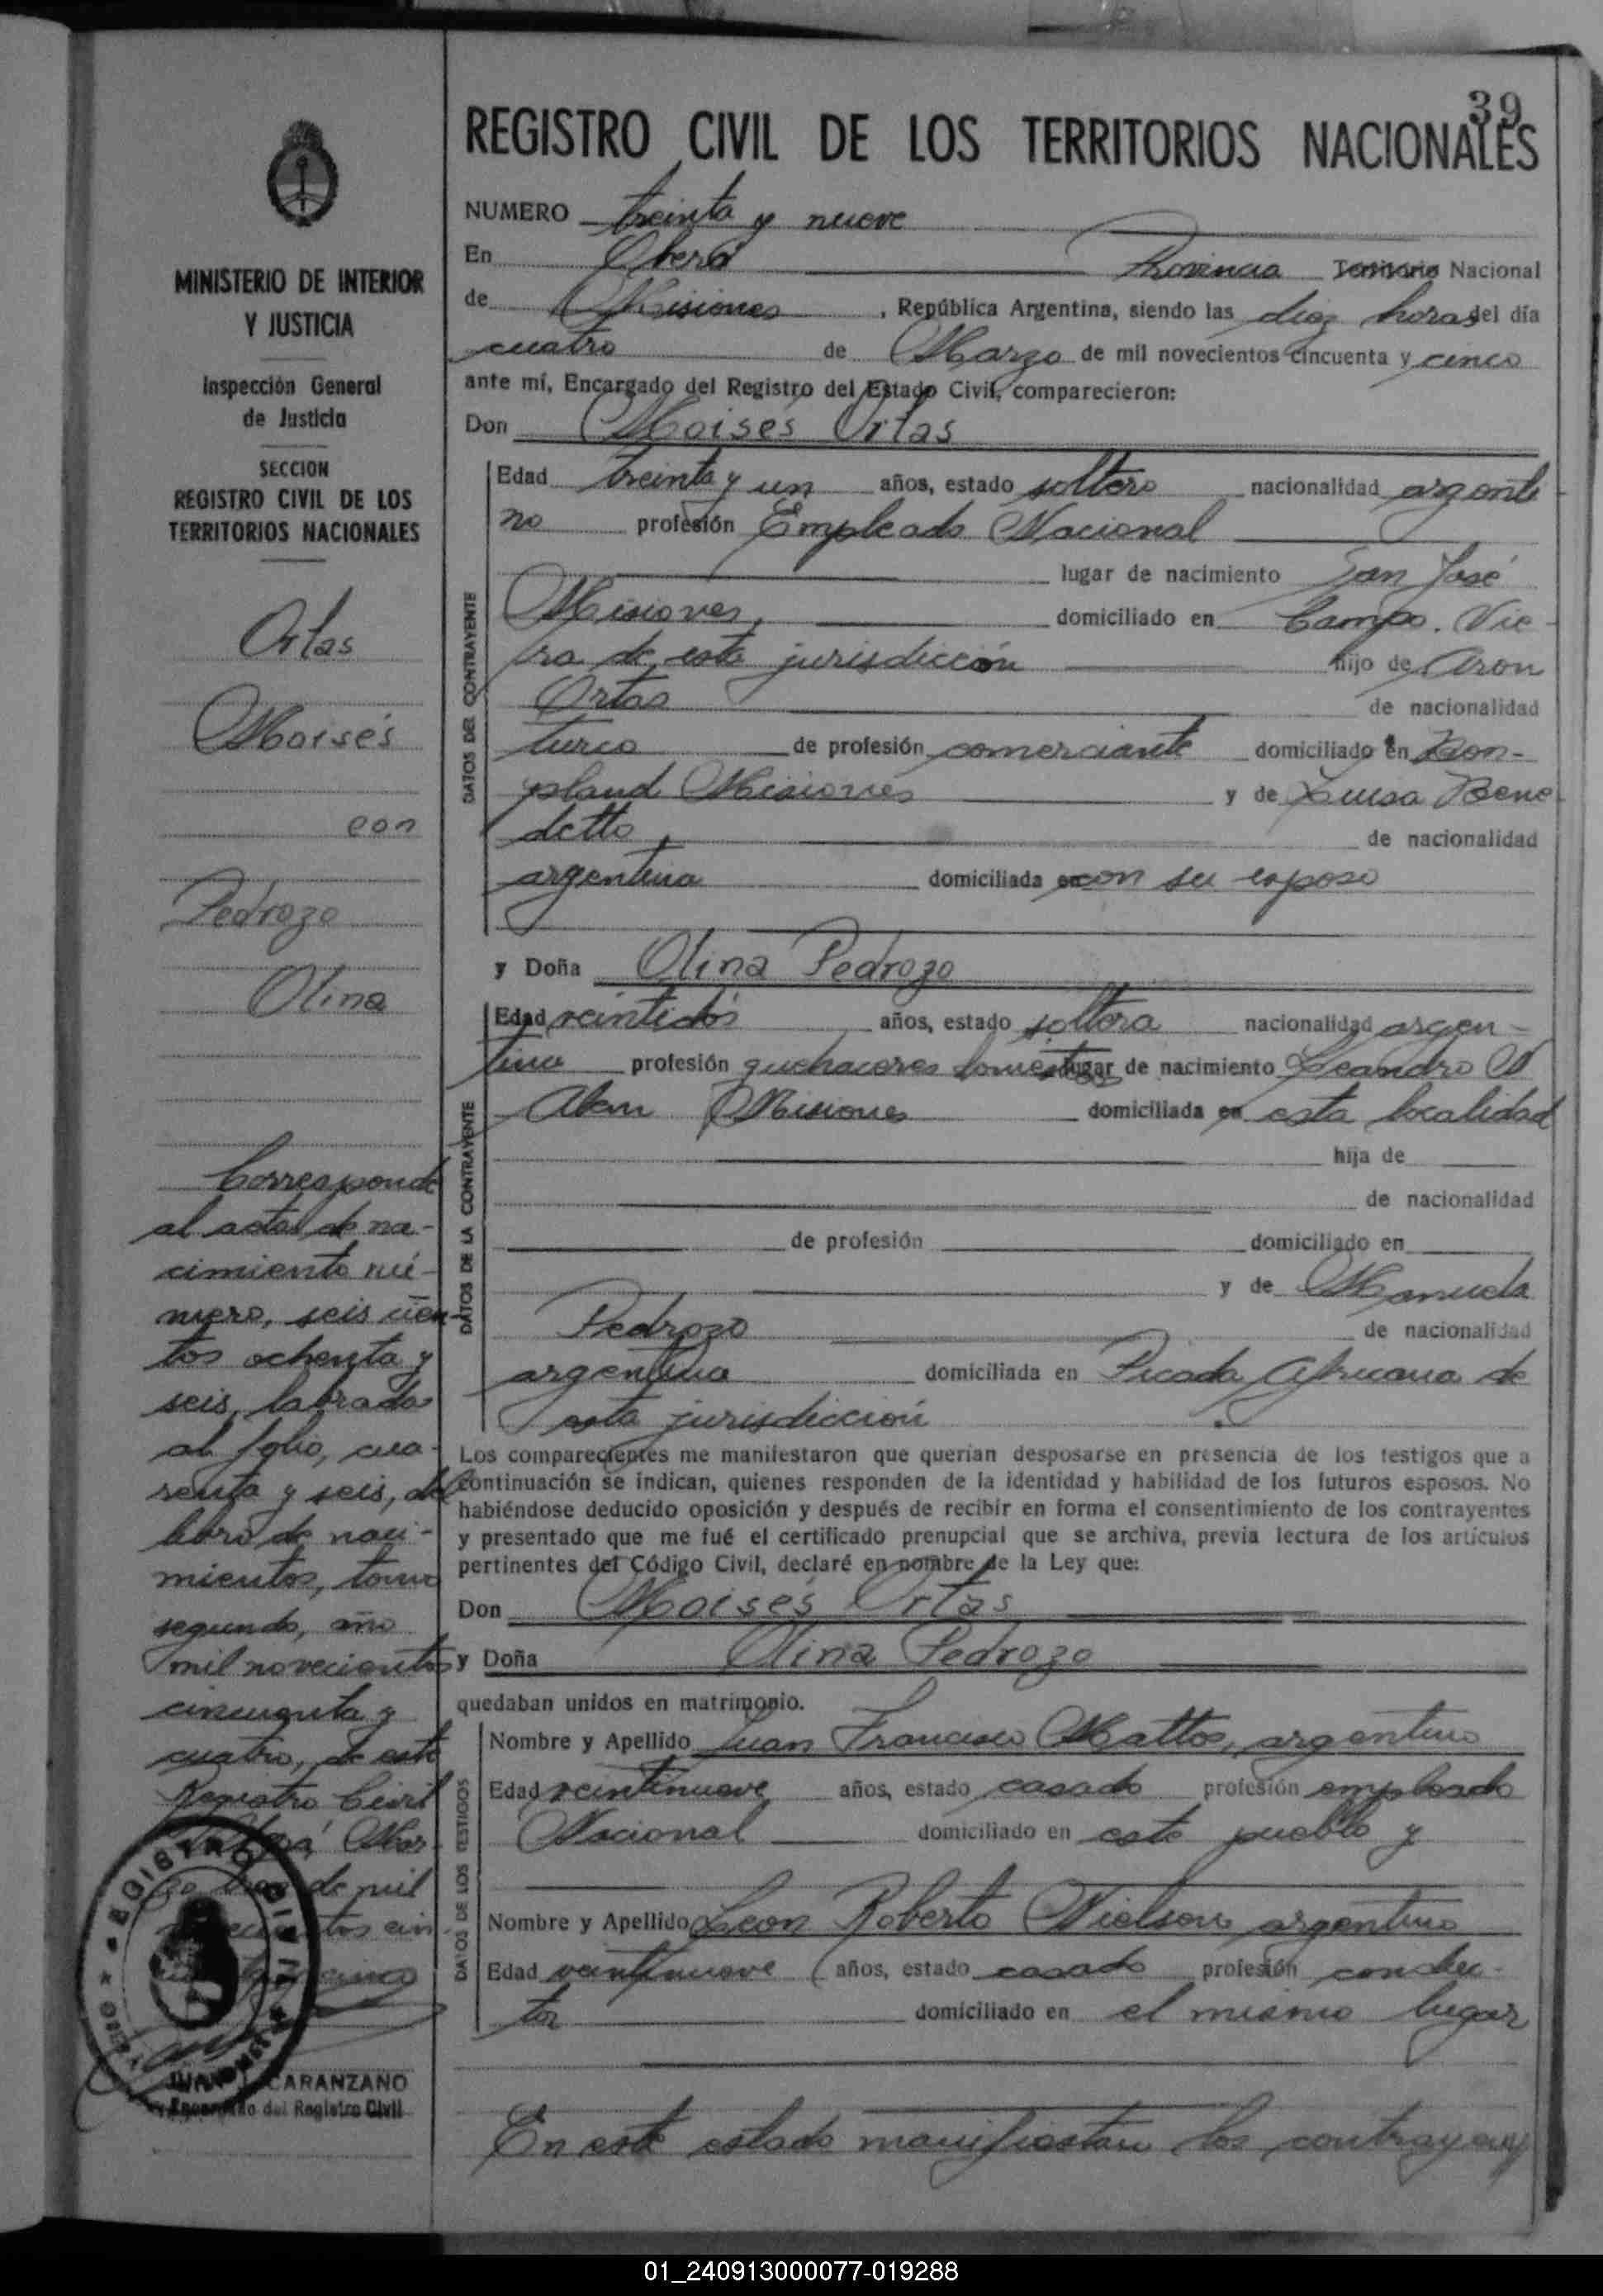 39
REGISTRO CIVIL DE LOS TERRITORIOS NACIONALES
MINISTERIO DE INTERIOR
Y JUSTICIA
Inspección General
de Justicia
SECCION
REGISTRO CIVIL DE LOS
TERRITORIOS NACIONALES
Ortas
Moisés
con
Pedrozo
Olina
Corresponde
al acta de na-
cimiento nú-
mero, seis cien-
tos ochenta y
seis, labrada
al folio, cua-
renta y seis, del
libro de naci-
mientos, tomo
segundo, año
mil novecientos
cincuenta y
cuatro, de este
Registro Civil
Oberá, Mar-
de mil
cin
REGISTRO CIVIL
CARANZANO
Encargado del Registro Civil
NUMERO treinta y nueve
En Oberá Provincia Territorio Nacional
de Misiones, República Argentina, siendo las diez horas del día
cuatro de Marzo de mil novecientos cincuenta y cinco
ante mí, Encargado del Registro del Estado Civil, comparecieron:
Don Moisés Ortas
DATOS DEL CONTRAYENTE
Edad treinta y un años, estado soltero nacionalidad argenti
no profesión Empleado Nacional
lugar de nacimiento San José
Misiones, domiciliado en Campo. Vie-
ra de esta jurisdicción hijo de Aron
Ortas de nacionalidad
turco de profesión comerciante domiciliado en Bon-
pland Misiones y de Luisa Bene
detto, de nacionalidad
argentina domiciliada en con su esposo
y Doña Olina Pedrozo
DATOS DE LA CONTRAYENTE
Edad veintidós años, estado soltera nacionalidad argen-
tina profesión quehaceres domésticos lugar de nacimiento Leandro N
Alem Misiones domiciliada en esta localidad
hija de
de nacionalidad
de profesión domiciliado en
y de Manuela
Pedrozo de nacionalidad
argentina domiciliada en Picada Africana de
esta jurisdicción
Los comparecientes me manifestaron que querían desposarse en presencia de los testigos que a
continuación se indican, quienes responden de la identidad y habilidad de los futuros esposos. No
habiéndose deducido oposición y después de recibir en forma el consentimiento de los contrayentes
y presentado que me fué el certificado prenupcial que se archiva, previa lectura de los artículos
pertinentes del Código Civil, declaré en nombre de la Ley que:
Don Moisés Ortas
y Doña Olina Pedrozo
quedaban unidos en matrimonio.
DATOS DE LOS TESTIGOS
Nombre y Apellido Juan Francisco Mattos, argentino
Edad veintinueve años, estado casado profesión empleado
Nacional domiciliado en este pueblo y
Nombre y Apellido Leon Roberto Nielson argentino
Edad veintinueve años, estado casado profesión conduc-
tor domiciliado en el mismo lugar
En este estado manifiestan los contrayen
01_240913000077-019288